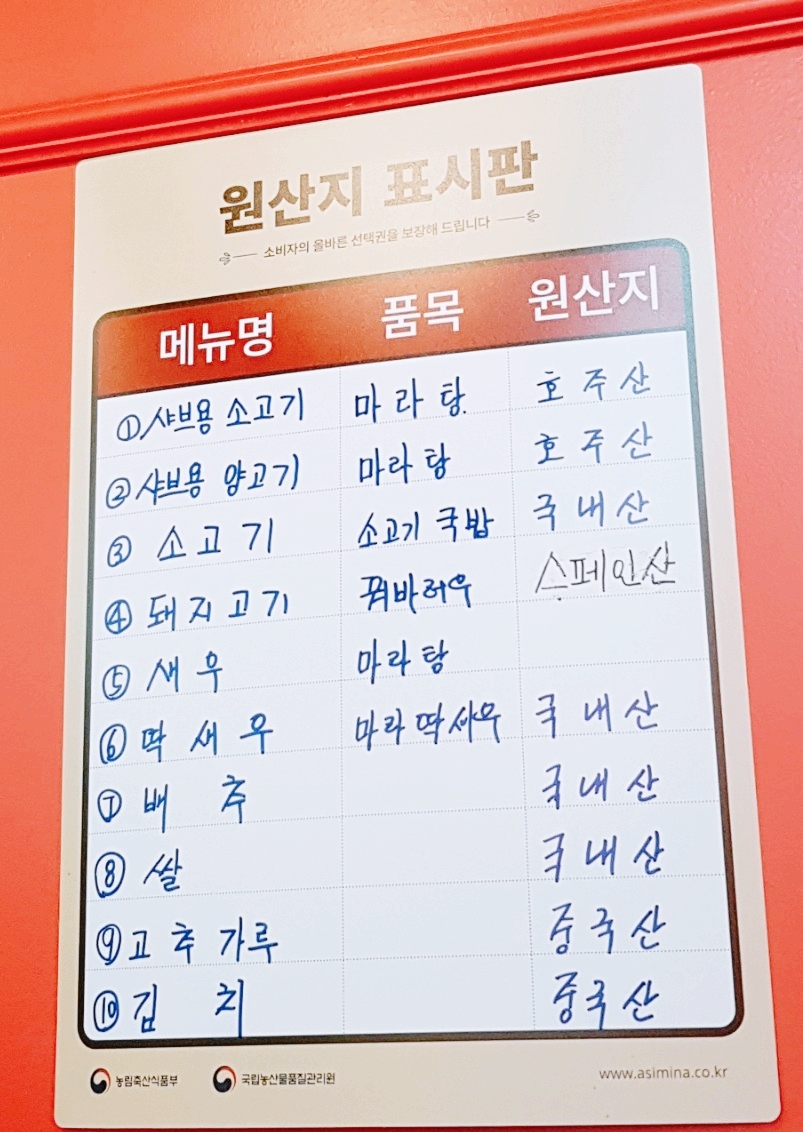 원산지 표시판
소비자의 올바른 선택권을 보장해 드립니다
메뉴명 품목 원산지
① 샤브용 소고기 마라탕 호주산
② 샤브용 양고기 마라탕 호주산
③ 소고기 소고기 국밥 국내산
④ 돼지고기 꿔바러우 스페인산
⑤ 새우 마라탕
⑥ 딱새우 마라딱새우 국내산
⑦ 배추 국내산
⑧ 쌀 국내산
⑨ 고추가루 중국산
⑩ 김치 중국산
농림축산식품부 국립농산물품질관리원 www.asimina.co.kr